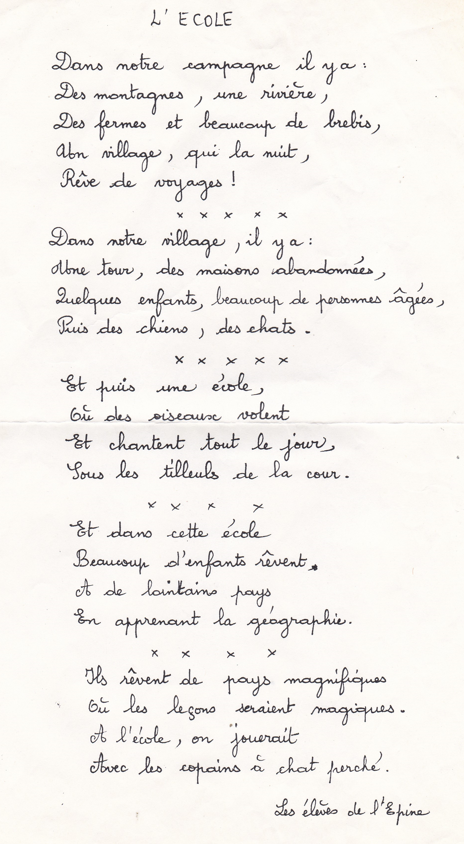 L' ECOLE
Dans notre campagne il y a :
Des montagnes , une rivière ,
Des fermes et beaucoup de brebis,
Un village, qui la nuit,
Rêve de voyages !
x x x x x
Dans notre village , il y a :
Une tour, des maisons abandonnées,
Quelques enfants, beaucoup de personnes âgées,
Puis des chiens , des chats .
x x x x x
Et puis une école,
Où des oiseaux volent
Et chantent tout le jour,
Sous les tilleuls de la cour.
x x x x
Et dans cette école
Beaucoup d'enfants rêvent.
A de lointains pays
En apprenant la géographie.
x x x x
Ils rêvent de pays magnifiques
Où les leçons seraient magiques.
A l'école, on jouerait
Avec les copains à chat perché.
Les élèves de l'Epine